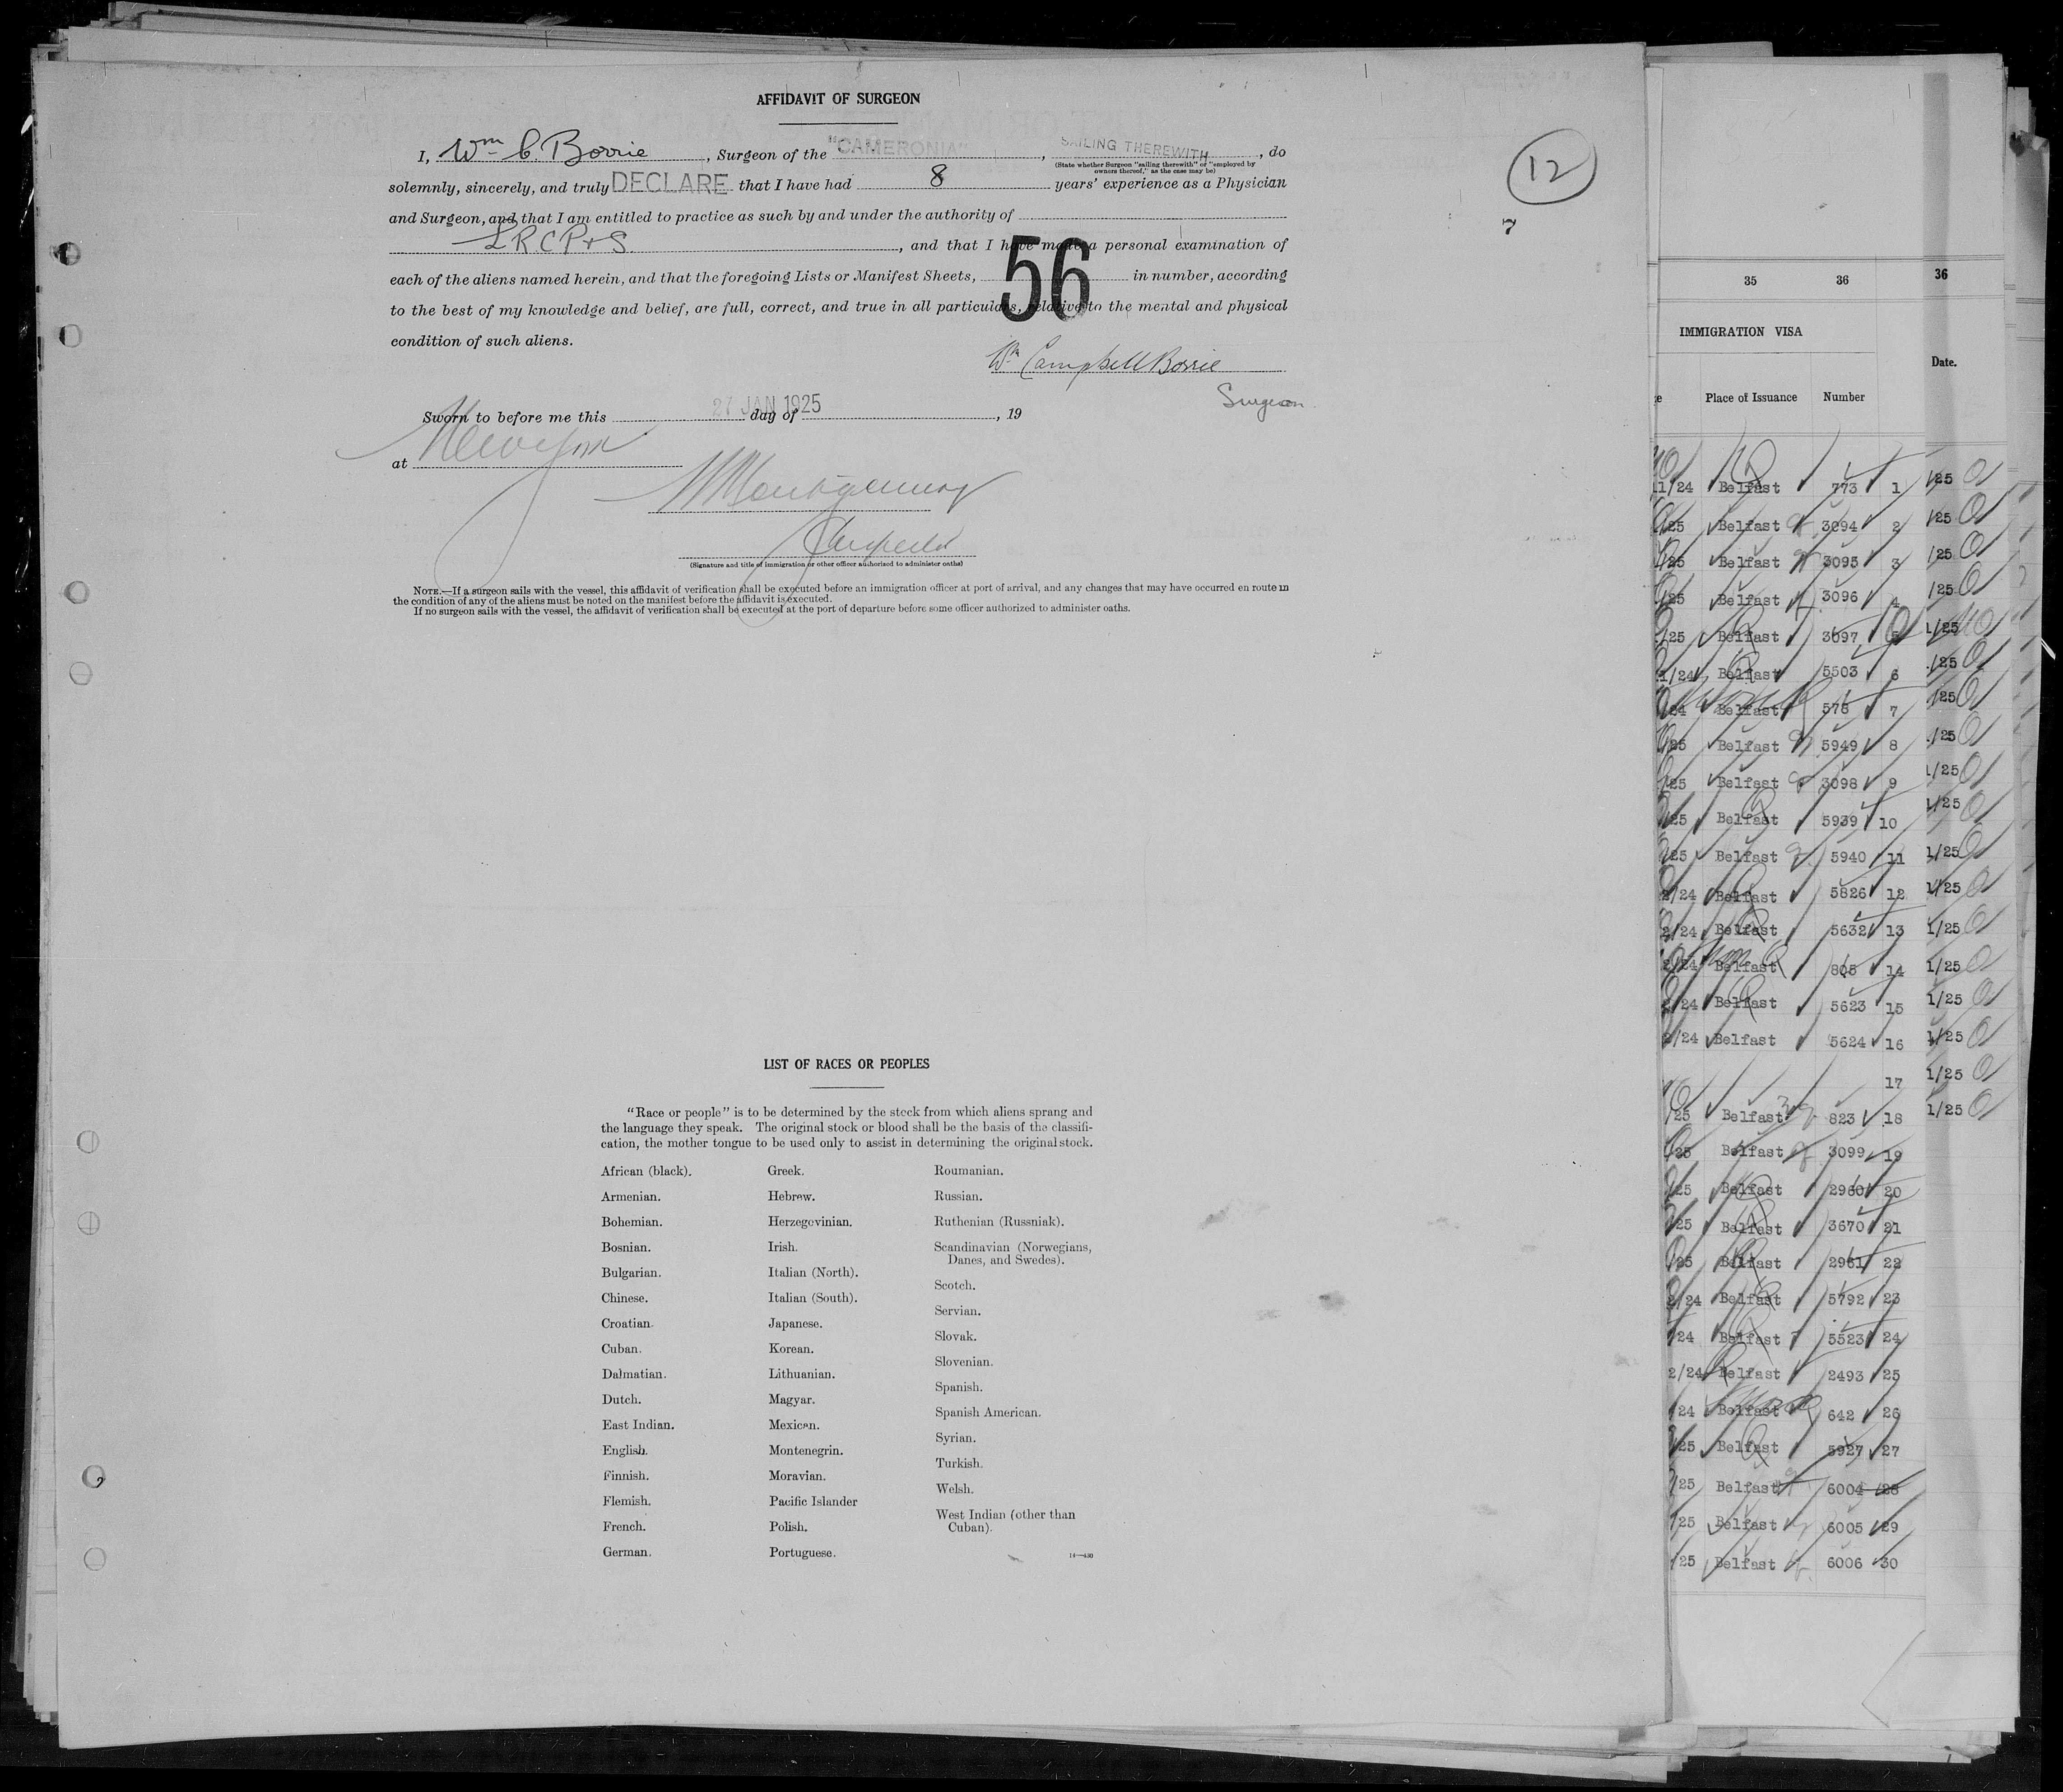 AFFIDAVIT OF SURGEON
I, Wm C. Borrie, Surgeon of the "CAMERONIA", SAILING THEREWITH, do
(State whether Surgeon "sailing therewith" or "employed by
owners thereof," as the case may be)
solemnly, sincerely, and truly DECLARE that I have had 8 years' experience as a Physician
and Surgeon, and that I am entitled to practice as such by and under the authority of
L R C P + S., and that I have made a personal examination of
each of the aliens named herein, and that the foregoing Lists or Manifest Sheets, 56 in number, according
to the best of my knowledge and belief, are full, correct, and true in all particulars, relative to the mental and physical
condition of such aliens.
Wm Campbell Borrie
Surgeon.
Sworn to before me this 27 JAN 1925 day of , 19
at New York
Montgomery
Inspector
(Signature and title of immigration or other officer authorized to administer oaths)
NOTE.—If a surgeon sails with the vessel, this affidavit of verification shall be executed before an immigration officer at port of arrival, and any changes that may have occurred en route in
the condition of any of the aliens must be noted on the manifest before the affidavit is executed.
If no surgeon sails with the vessel, the affidavit of verification shall be executed at the port of departure before some officer authorized to administer oaths.
12
7
LIST OF RACES OR PEOPLES
"Race or people" is to be determined by the stock from which aliens sprang and
the language they speak. The original stock or blood shall be the basis of the classifi-
cation, the mother tongue to be used only to assist in determining the original stock.
African (black).
Armenian.
Bohemian.
Bosnian.
Bulgarian.
Chinese.
Croatian.
Cuban.
Dalmatian.
Dutch.
East Indian.
English.
Finnish.
Flemish.
French.
German.
Greek.
Hebrew.
Herzegovinian.
Irish.
Italian (North).
Italian (South).
Japanese.
Korean.
Lithuanian.
Magyar.
Mexican.
Montenegrin.
Moravian.
Pacific Islander
Polish.
Portuguese.
Roumanian.
Russian.
Ruthenian (Russniak).
Scandinavian (Norwegians,
Danes, and Swedes).
Scotch.
Servian.
Slovak.
Slovenian.
Spanish.
Spanish American.
Syrian.
Turkish.
Welsh.
West Indian (other than
Cuban).
14—430
35 36 36
IMMIGRATION VISA
Date.
Place of Issuance Number
11/24 Belfast 773 1 /25
/25 Belfast 3094 2 /25
/25 Belfast 3095 3 /25
/25 Belfast 3096 4 /25
/25 Belfast 3097 5 1/25
1/24 Belfast 5503 6 /25
/24 Belfast 578 7 /25
/25 Belfast 5949 8 1/25
/25 Belfast 3098 9 1/25
/25 Belfast 5939 10 1/25
/25 Belfast 5940 11 1/25
2/24 Belfast 5826 12 1/25
2/24 Belfast 5632 13 1/25
2/24 Belfast 805 14 1/25
2/24 Belfast 5623 15 1/25
2/24 Belfast 5624 16 1/25
17 1/25
/25 Belfast 823 18 1/25
/25 Belfast 3099 19
/25 Belfast 2960 20
/25 Belfast 3670 21
/25 Belfast 2961 22
2/24 Belfast 5792 23
/24 Belfast 5523 24
2/24 Belfast 2493 25
/24 Belfast 642 26
/25 Belfast 5927 27
/25 Belfast 6004 28
/25 Belfast 6005 29
/25 Belfast 6006 30